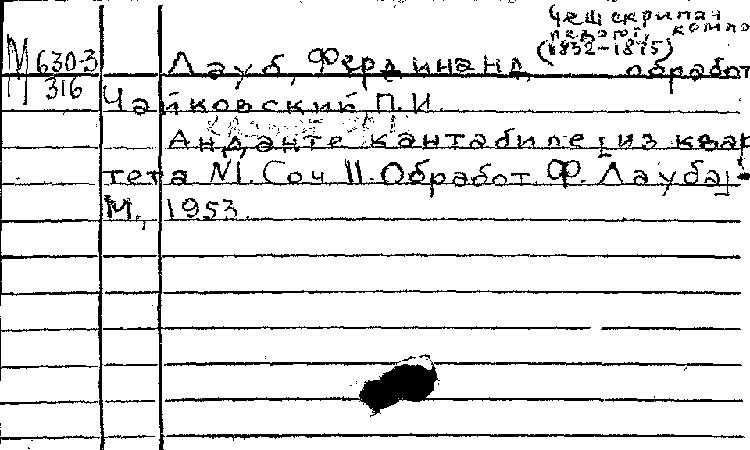 Чеш скрипач
педагог, компо
(1832-1875)
М 630-3
П 316
Лауб, Фердинанд, обработ
Чайковский П.И.
Анданте кантабиле [из квар
тета №1. Соч 11. Обработ. Ф. Лауба].-
М., 1953.